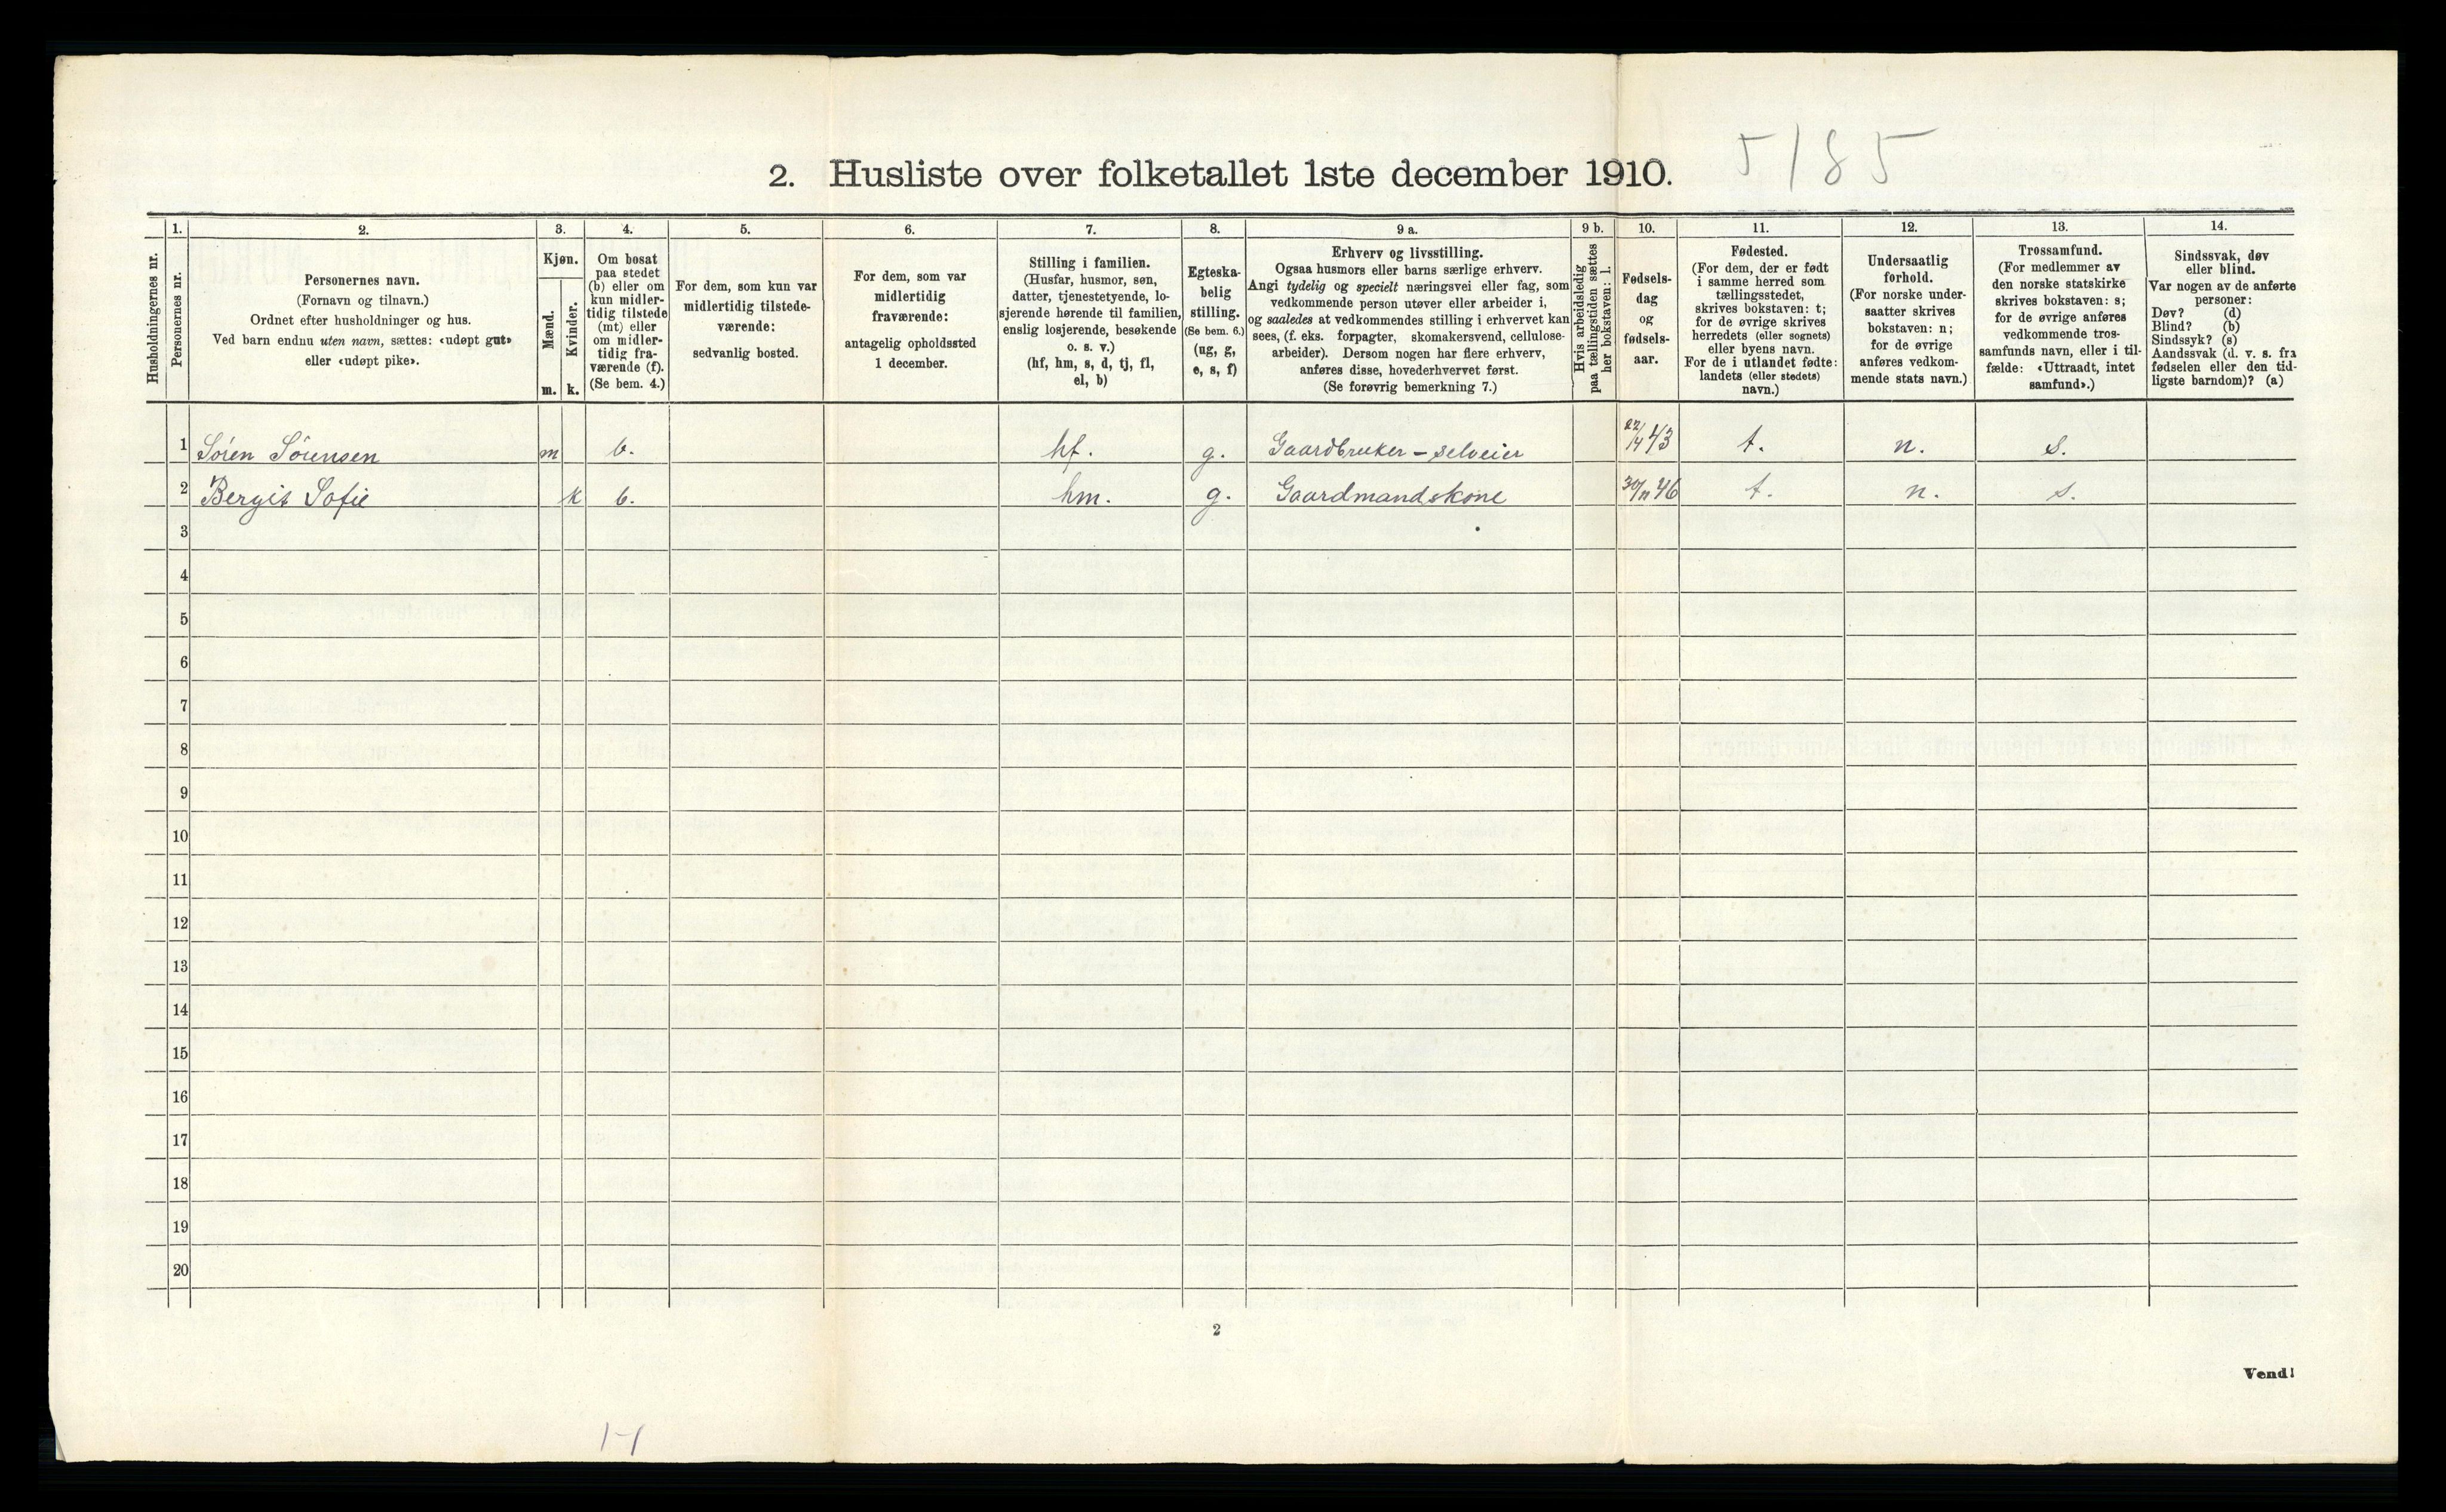 5185
2. Husliste over folketallet 1ste december 1910.
Husholdningernes nr.
1.
Personernes nr.
2.
Personernes navn.
(Fornavn og tilnavn.)
Ordnet efter husholdninger og hus.
Ved barn endnu uten navn, sættes: «udøpt gut»
eller «udøpt pike».
3.
Kjøn.
Mænd.
m.
Kvinder.
k.
4.
Om bosat
paa stedet
(b) eller om
kun midler-
tidig tilstede
(mt) eller
om midler-
tidig fra-
værende (f).
(Se bem. 4.)
5.
For dem, som kun var
midlertidig tilstede-
værende:
sedvanlig bosted.
6.
For dem, som var
midlertidig
fraværende:
antagelig opholdssted
1 december.
7.
Stilling i familien.
(Husfar, husmor, søn,
datter, tjenestetyende, lo-
sjerende hørende til familien,
enslig losjerende, besøkende
o. s. v.)
(hf, hm, s, d, tj, fl,
el, b)
8.
Egteska-
belig
stilling.
(Se bem. 6.)
(ug, g,
e, s, f)
9 a.
Erhverv og livsstilling.
Ogsaa husmors eller barns særlige erhverv.
Angi tydelig og specielt næringsvei eller fag, som
vedkommende person utøver eller arbeider i,
og saaledes at vedkommendes stilling i erhvervet kan
sees, (f. eks. forpagter, skomakersvend, cellulose-
arbeider). Dersom nogen har flere erhverv,
anføres disse, hovederhvervet først.
(Se forøvrig bemerkning 7.)
9 b.
Hvis arbeidsledig
paa tællingstiden sættes
her bokstaven: l.
10.
Fødsels-
dag
og
fødsels-
aar.
11.
Fødested.
(For dem, der er født
i samme herred som
tællingsstedet,
skrives bokstaven: t;
for de øvrige skrives
herredets (eller sognets)
eller byens navn.
For de i utlandet fødte:
landets (eller stedets)
navn.)
12.
Undersaatlig
forhold.
(For norske under-
saatter skrives
bokstaven: n;
for de øvrige
anføres vedkom-
mende stats navn.)
13.
Trossamfund.
(For medlemmer av
den norske statskirke
skrives bokstaven: s;
for de øvrige anføres
vedkommende tros-
samfunds navn, eller i til-
fælde: «Uttraadt, intet
samfund».)
14.
Sindssvak, døv
eller blind.
Var nogen av de anførte
personer:
Døv? (d)
Blind? (b)
Sindssyk? (s)
Aandssvak (d. v. s. fra
fødselen eller den tid-
ligste barndom)? (a)
1 Sören Sörensen m b. hf. g. Gaardbruker - selveier 43 t. n. s.
2 Bergit Sofie k b. hm. g. Gaardmandskone 30/11 46 t. n. s.
3
4
5
6
7
8
9
10
11
12
13
14
15
16
17
18
19
20
2
Vend!